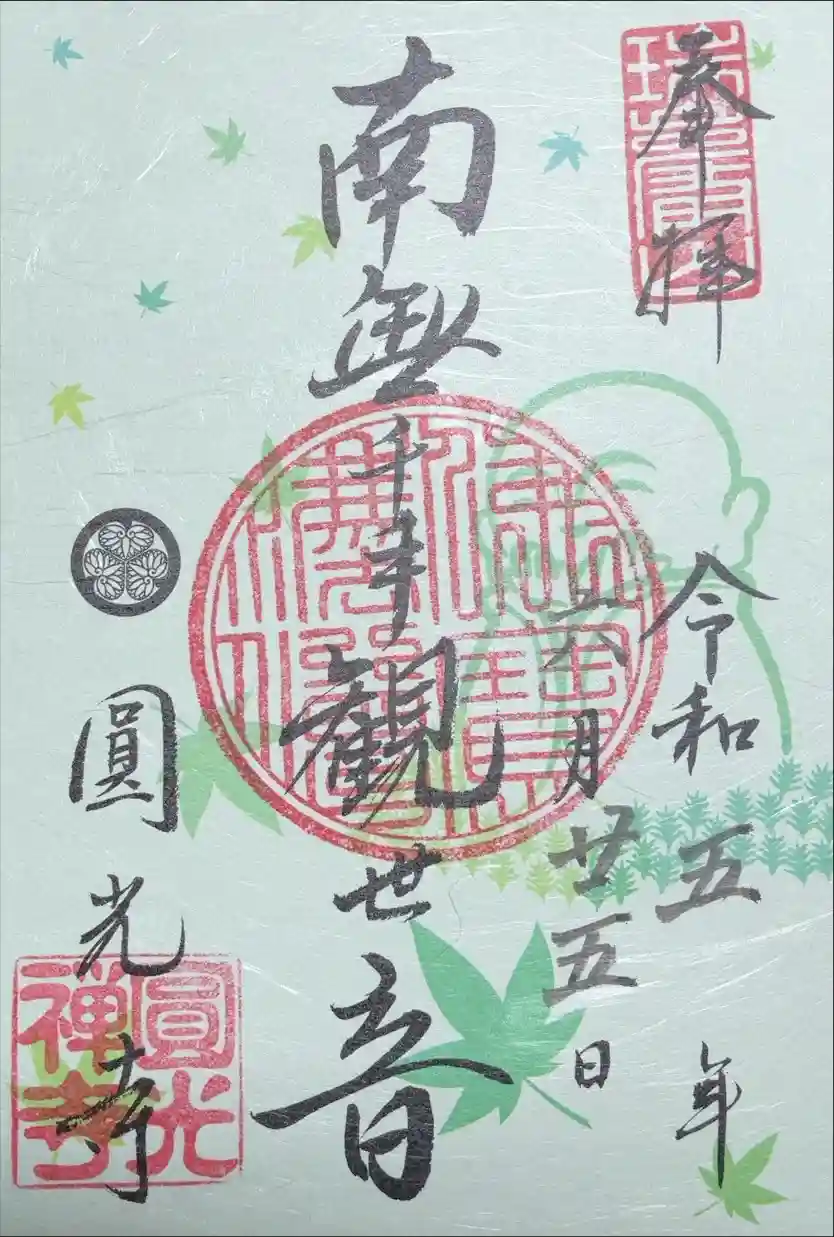 奉拝
令和五年
六月廿五日
南無千手観世音
圓光寺
圓光禅寺